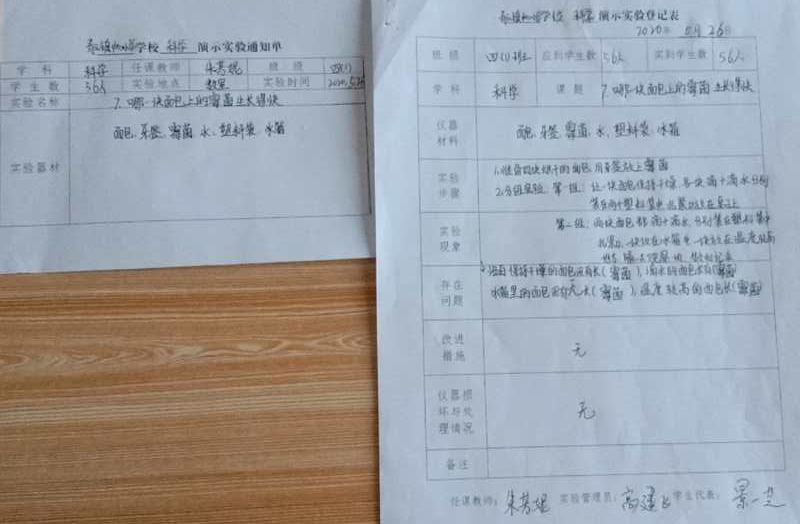 学校 科学 演示实验通知单
学科 科学 任课教师 朱芳琨 班级 四(1)
学生数 56人 实验地点 教室 实验时间 2020.5.26
实验名称 7.哪一块面包上的霉菌生长得快
实验器材 面包、牙签、霉菌、水、塑料袋、冰箱
学校 科学 演示实验登记表
2020年 5月26日
班级 四(1)班 应到学生数 56人 实到学生数 56人
学科 科学 课题 7.哪一块面包上的霉菌生长得快
仪器材料 面包、牙签、霉菌、水、塑料袋、冰箱
实验步骤 1.准备四块烘干的面包,用牙签放上霉菌
2.分组实验。第一组:让一块面包保持干燥,另一块滴十滴水,分别
装在两个塑料袋中
第二组:两块面包都滴十滴水,分别装在塑料袋中
一块放在冰箱里,一块放在温度较高
实验现象
保持干燥的面包没有长(霉菌),滴水的面包长有(霉菌)
存在问题 冰箱里的面包没有长(霉菌),温度较高的面包长(霉菌)
改进措施 无
仪器损坏与处理情况 无
备注
任课教师: 朱芳琨 实验管理员: 学生代表: 景一